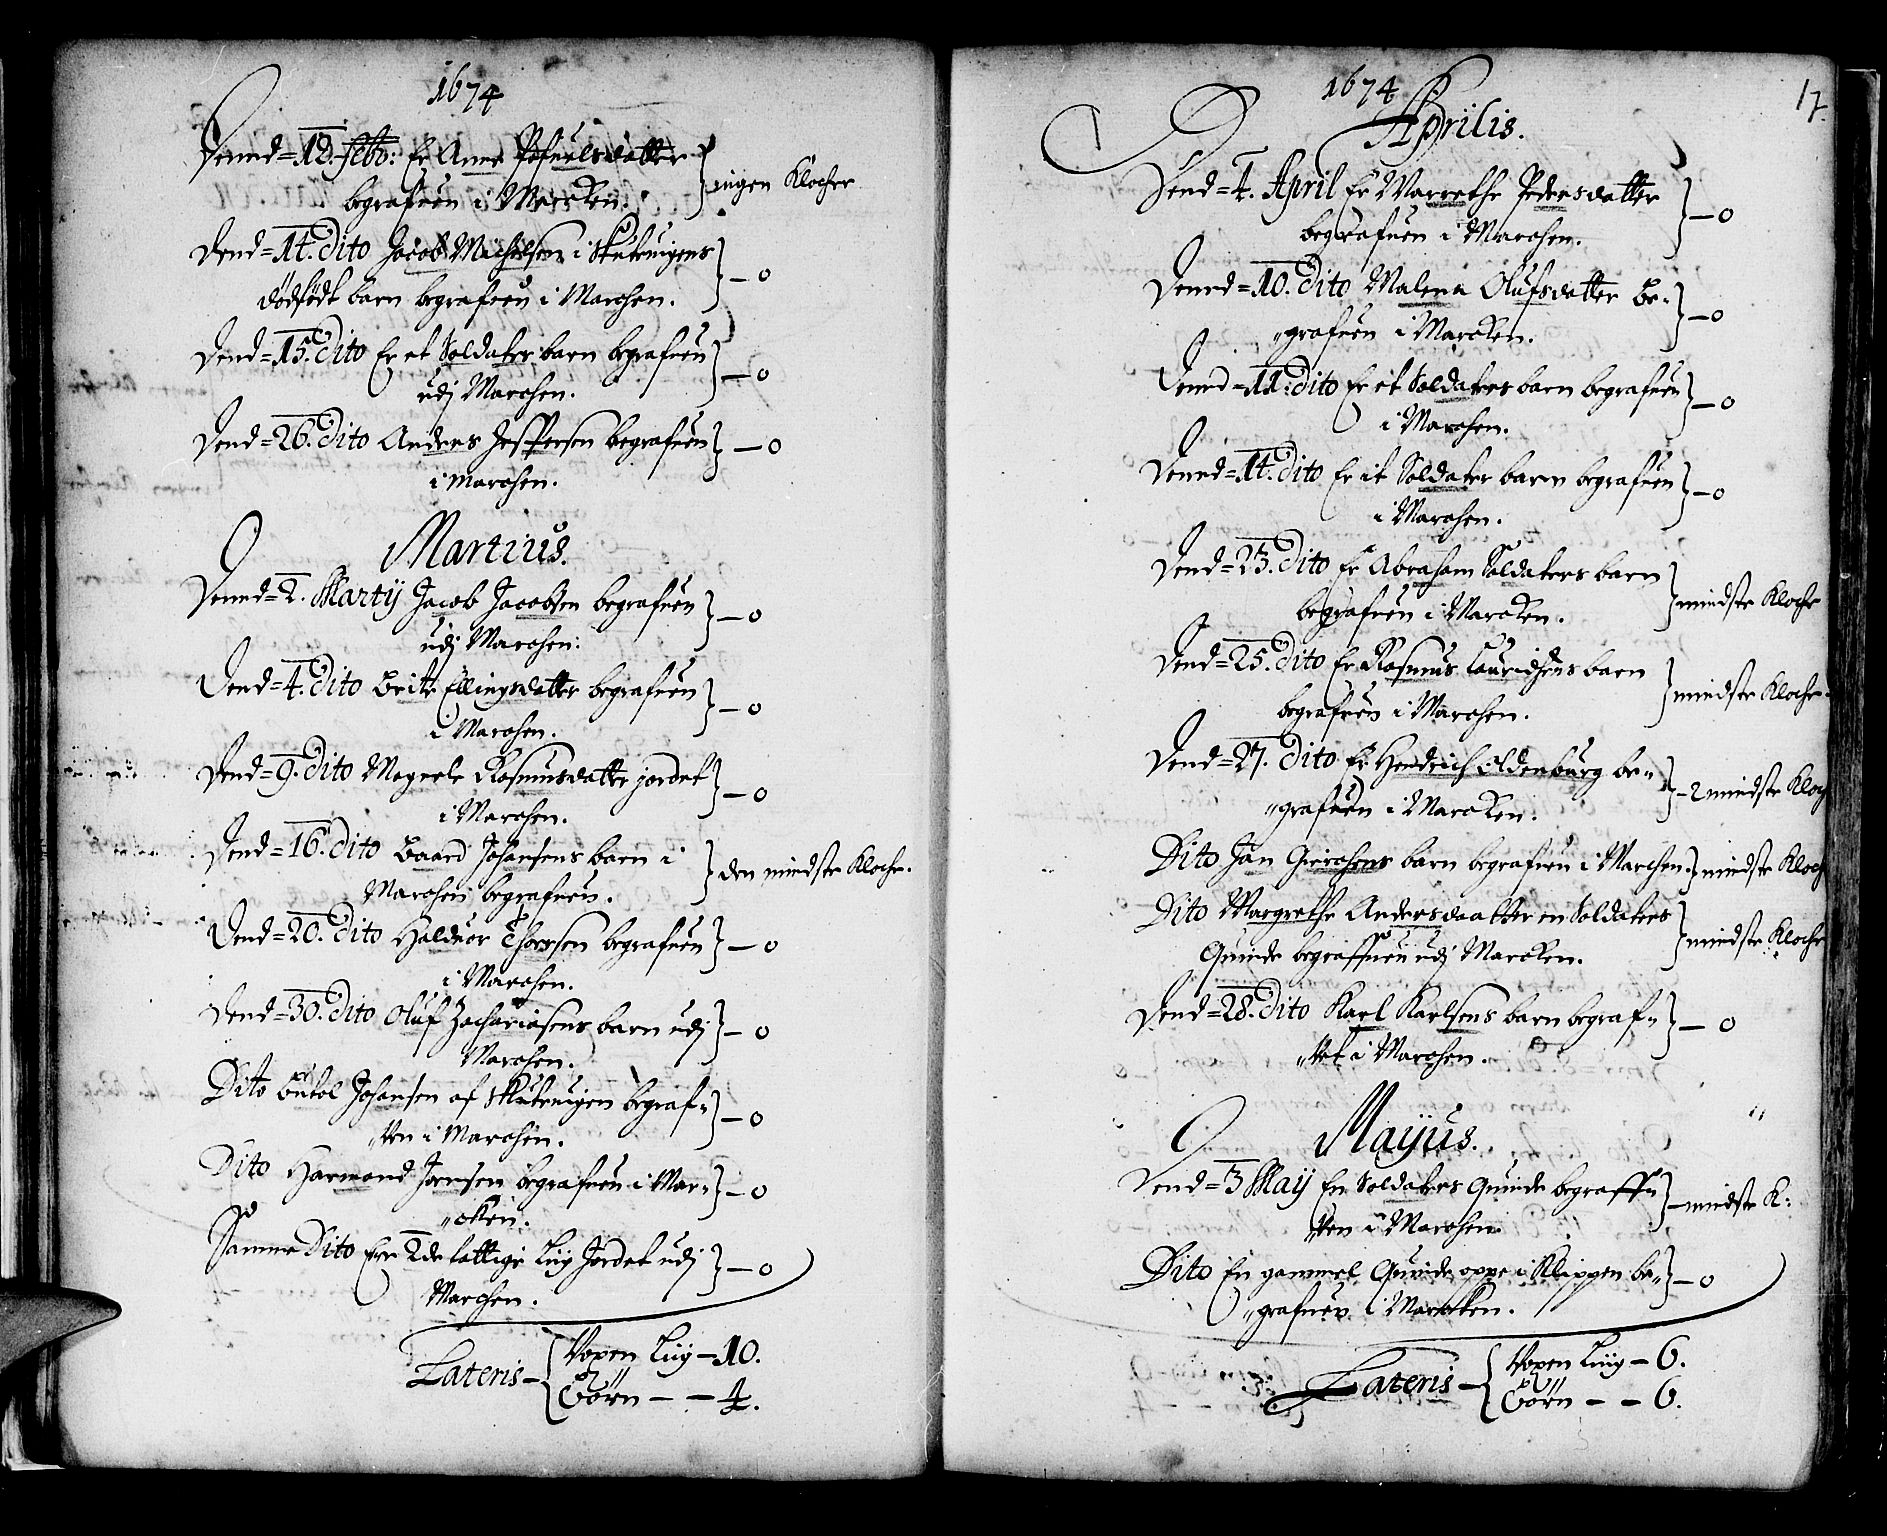 1674
Dennd=12. febo: Er Anne Pofuelsdatter
begrafuen i Marcken. } ingen Klocker
Dend=14. Dito Jacob Michelsen i Skuteuigens
dødfødt barn begrafuen i Marchen. } — 0
Dend=15. Dito Er et Soldater barn begrafuen
udj Marchen. } — 0
Dend=26. Dito Anders Jespersen begrafuen
i Marchen. } — 0
Martius.
Dennd=2. Martij Jacob Jacobsen begrafuen
udj Marchen: } — 0
Dend=4. Dito Brite Ellingsdatter begrafuen
i Marchen. } — 0
Dend=9. Dito Magrele Rasmusdatter jordet
i Marchen. } — 0
Dend=16. Dito Baard Johansens barn i
Marchen begrafuen. } den mindste Klocke.
Dend=20. Dito Halduor Thorsen begrafuen
i Marchen. } — 0
Dend=30. Dito Oluf Zachariasens barn udj
Marchen. } — 0
Dito Butol Johansen af Skuteuigen begraf„
„uen i Marchen. } — 0
Dito Harmand Jensen begrafuen i Mar„
„cken. } — 0
Samme Dito Ere 2de fattige Liig Jordet udj
Marchen. } — 0
Lateris — { Voxen Liig — 10.
Börn — — 4.
1674
17.
Aprilis.
Dend=4. April Er Marrethe Pedersdatter
begrafuen i Marchen. } — 0
Dennd=10. Dito Malena Olufsdatter be„
„grafuen i Marcken. } — 0
Dennd=11. Dito Er et Soldaters barn begrafuen
i Marchen. } — 0
Dennd=14. Dito Er it Soldater barn begrafuen
i Marchen. } — 0
Dend=23. Dito Er Abraham Soldaters barn
begrafuen i Marcken. } mindste Klocke
Dend=25. Dito Er Rasmus Lauridsens barn
begrafuen i Marchen. } mindste Klocke
Dend=27. Dito Er Hendrich Oldenburg be„
„grafuen i Marcken. } — 2 mindste Kloch
Dito Jan Gierchens barn begrafuen i Marchen. } mindste Kloch
Dito Margrethe Andersdaatter en Soldaters
Quinde begraffuen udj Marcken. } mindste Klocke
Dend=28. Dito Karl Karlsens barn begraf„
„uet i Marchen. } — 0
Mayus.
Dend=3 May En Soldaters Quinde begraff„
„uen i Marchen. } — mindste K:
Dito En gammel Quinde oppe i Klippen be„
„grafuen i Marcken. } — 0
Lateris — { Voxen Liig — 6.
Börn — — 6.